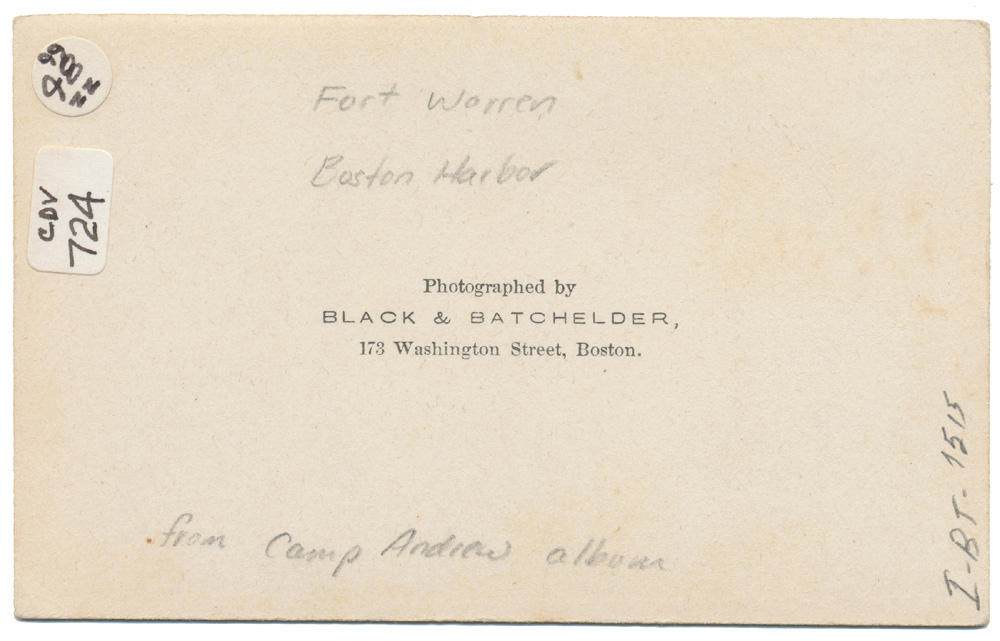 Fort Warren
Boston Harbor
CDV
724
Photographed by
BLACK & BATCHELDER,
173 Washington Street, Boston.
from Camp Andrew album
I-BT-1515